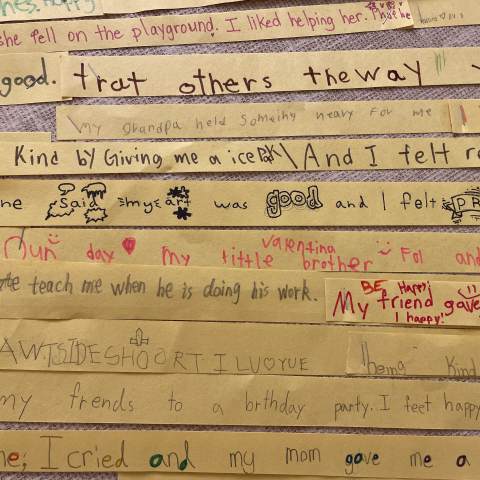 nes. Happy
she fell on the playground. I liked helping her. Phoebe
good. trat others the way
my grandpa held somethy heavy For me
Kind by Giving me a ice And I felt
ne Said my art was good and I felt PR
day my little Valentina brother Fol and
te teach me when he is doing his work. BE Happy My friend gave I happy!
AWTSIDESHOORT I LUOYUE Kind
my frends to a brthday party. I feet happy
ne; I cried and my mom gove me a